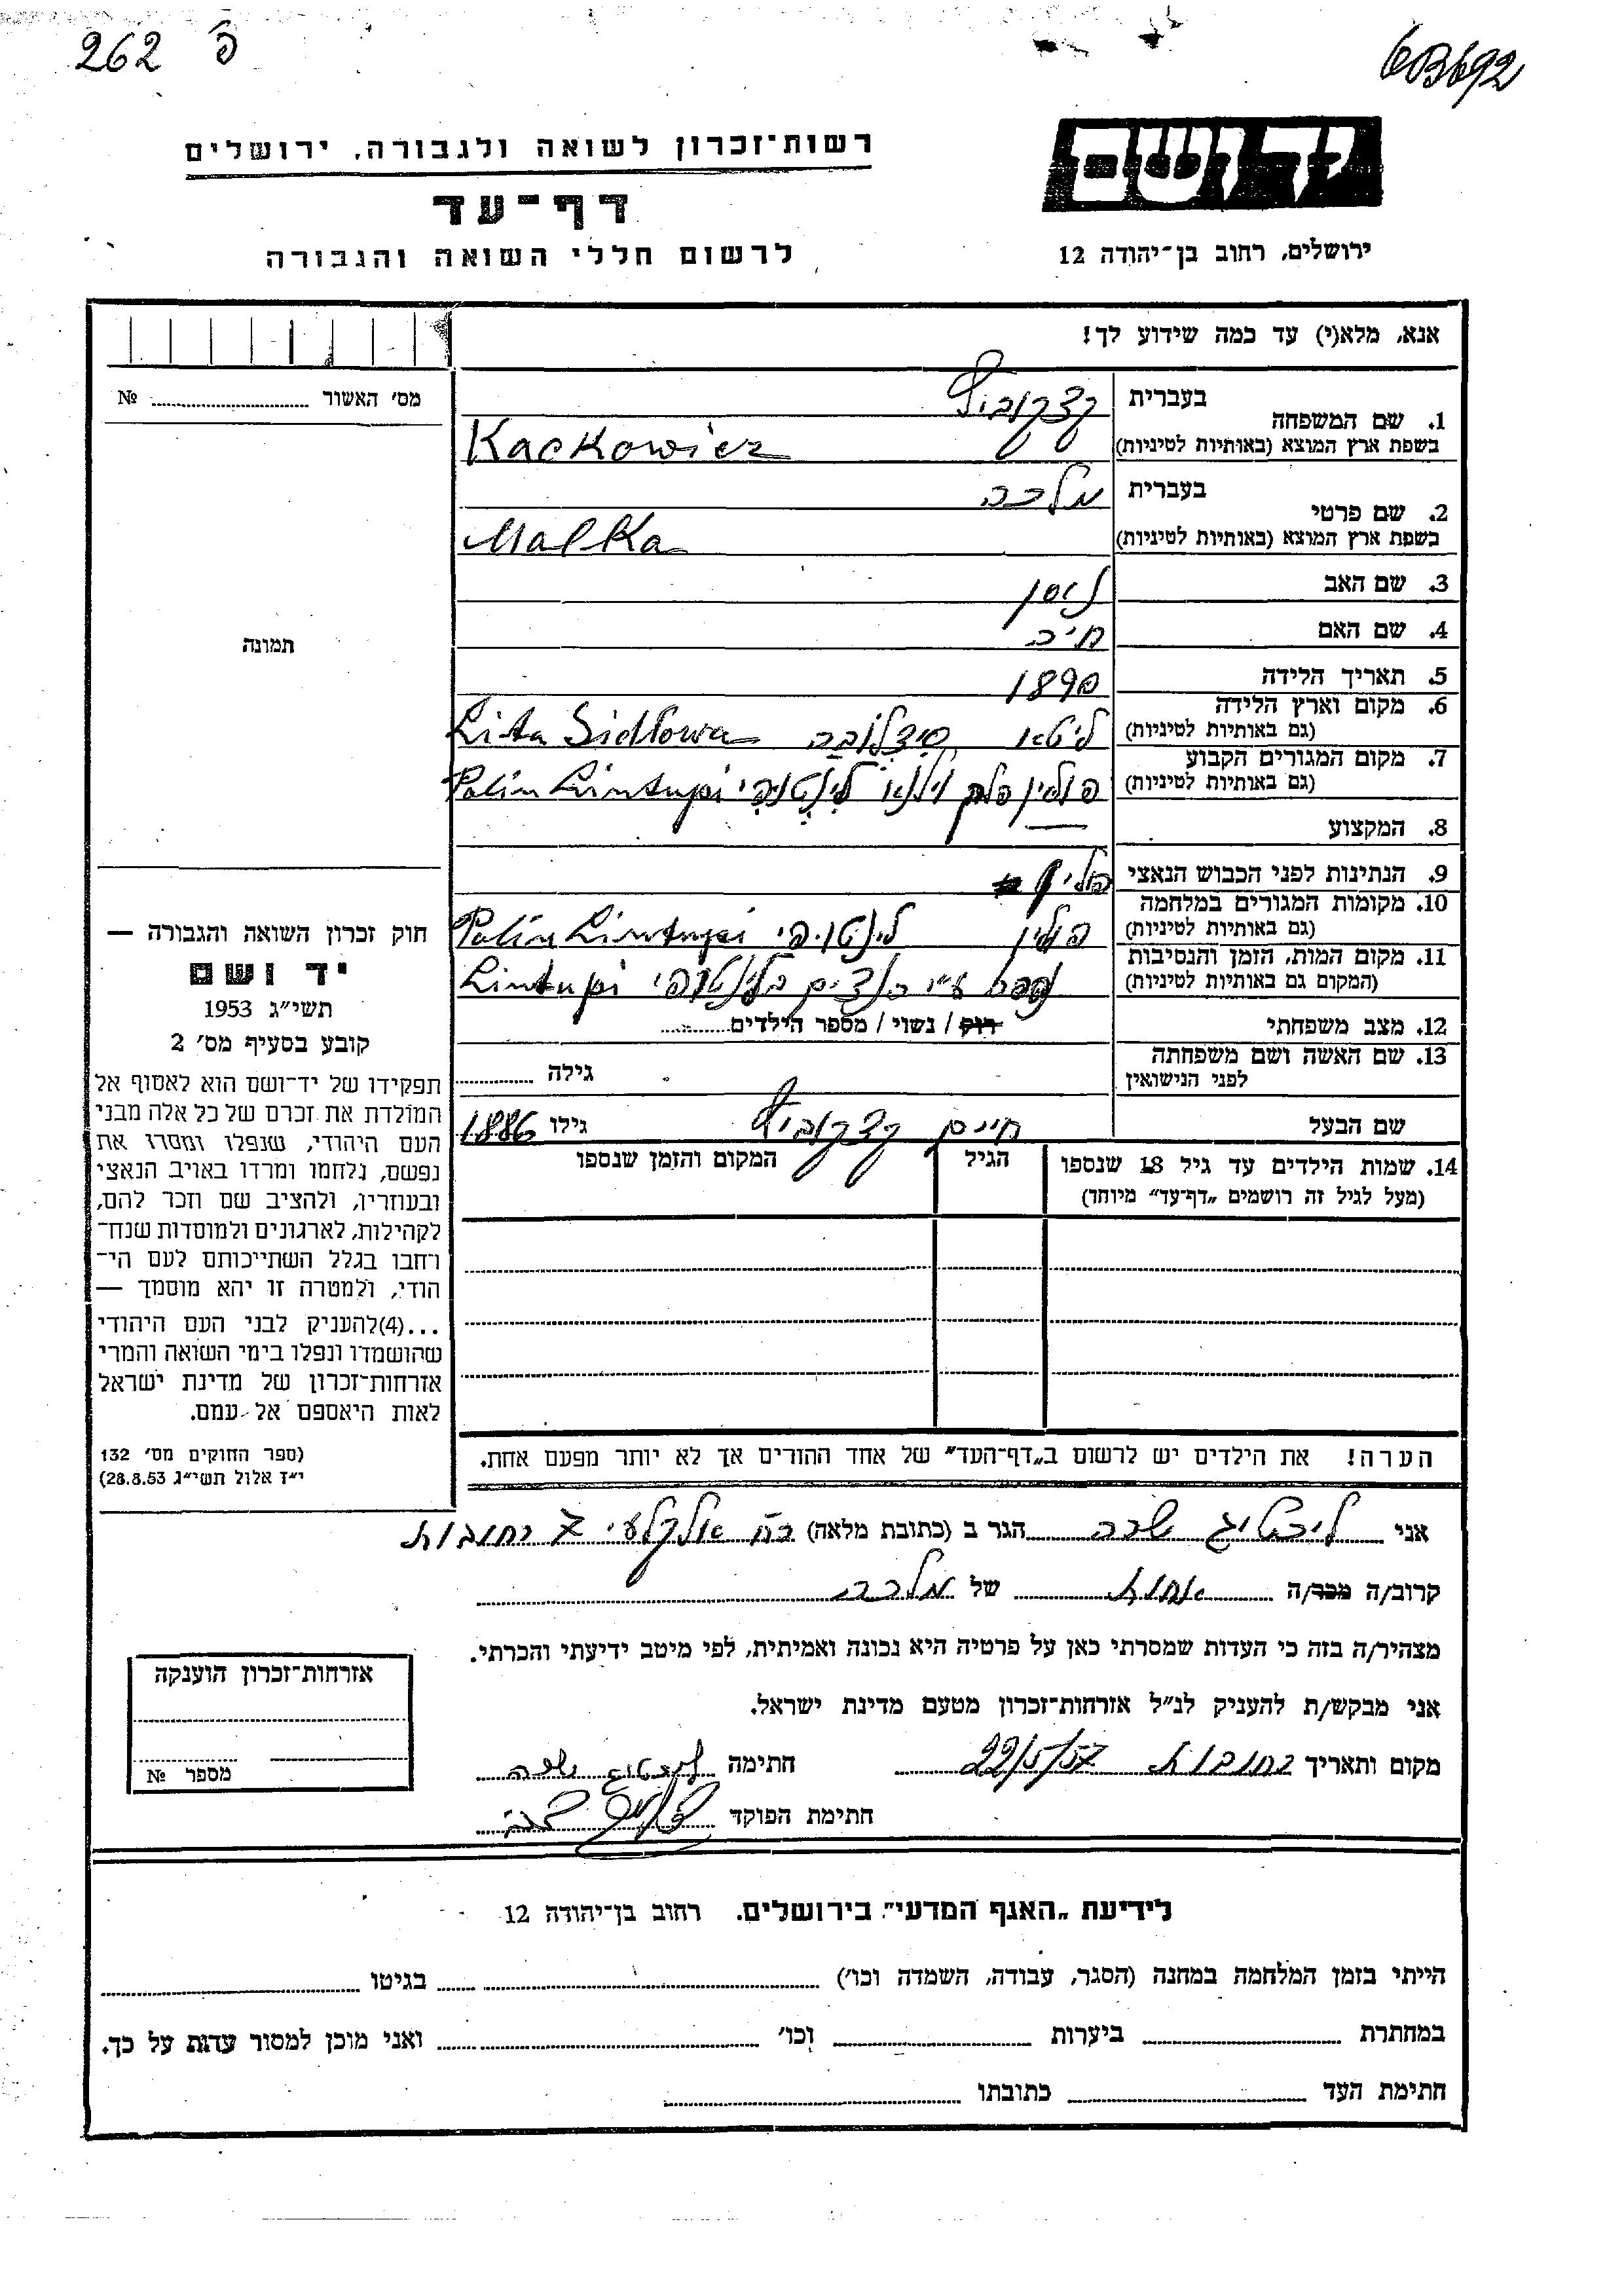 262 פ
6B692
רשות־זכרון לשואה ולגבורה, ירושלים
דף־עד
לרשום חללי השואה והגבורה
יד ושם
ירושלים, רחוב בן־יהודה 12
אנא, מלא(י) עד כמה שידוע לך!
מס' האשור № 
תמונה
1. שם המשפחה בעברית קצקוביץ
בשפת ארץ המוצא (באותיות לטיניות) Kackowicz
2. שם פרטי בעברית מלכה
בשפת ארץ המוצא (באותיות לטיניות) Malka
3. שם האב ניסן
4. שם האם חיה
5. תאריך הלידה 1890
6. מקום וארץ הלידה
(גם באותיות לטיניות) ליטא סידלובה Lita Sidlowa
7. מקום המגורים הקבוע
(גם באותיות לטיניות) פולין פלך וילנא לינטופי Polin Lintupi
8. המקצוע —
9. הנתינות לפני הכבוש הנאצי פולין
10. מקומות המגורים במלחמה
(גם באותיות לטיניות) פולין לינטופי Polin Lintupi
11. מקום המות, הזמן והנסיבות
(המקום גם באותיות לטיניות) נספה ע"י הנאצים בלינטופי Lintupi
12. מצב משפחתי רוק / נשוי / מספר הילדים
13. שם האשה ושם משפחתה
לפני הנישואין גילה
שם הבעל חיים קצקוביץ גילו 1886
14. שמות הילדים עד גיל 18 שנספו
(מעל לגיל זה רושמים „דף־עד" מיוחד)
הגיל
המקום והזמן שנספו
חוק זכרון השואה והגבורה —
יד ושם
תשי"ג 1953
קובע בסעיף מס' 2
תפקידו של יד־ושם הוא לאסוף אל
המולדת את זכרם של כל אלה מבני
העם היהודי, שנפלו ומסרו את
נפשם, נלחמו ומרדו באויב הנאצי
ובעוזריו, ולהציב שם וזכר להם,
לקהילות, לארגונים ולמוסדות שנח־
רחבו בגלל השתייכותם לעם הי־
הודי, ולמטרה זו יהא מוסמך —
...(4) להעניק לבני העם היהודי
שהושמדו ונפלו בימי השואה והמרי
אזרחות־זכרון של מדינת ישראל
לאות היאספם אל עמם.
(ספר החוקים מס' 132
י"ז אלול תשי"ג 28.8.53)
הערה! את הילדים יש לרשום ב„דף־העד" של אחד ההורים אך לא יותר מפעם אחת.
אני ליבטיג שרה הגר ב (כתובת מלאה) רח' אלקלעי 7 רחובות
קרוב/ה מכר/ה אחות של מלכה
מצהיר/ה בזה כי העדות שמסרתי כאן על פרטיה היא נכונה ואמיתית, לפי מיטב ידיעתי והכרתי.
אני מבקש/ת להעניק לנ"ל אזרחות־זכרון מטעם מדינת ישראל.
מקום ותאריך רחובות 22/5/57 חתימה ליבטיג שרה
חתימת הפוקד
אזרחות־זכרון הוענקה
מספר №
לידיעת „האגף המדעי" בירושלים. רחוב בן־יהודה 12
הייתי בזמן המלחמה במחנה (הסגר, עבודה, השמדה וכו') בגיטו
במחתרת ביערות וכו' ואני מוכן למסור עדות על כך.
חתימת העד כתובתו